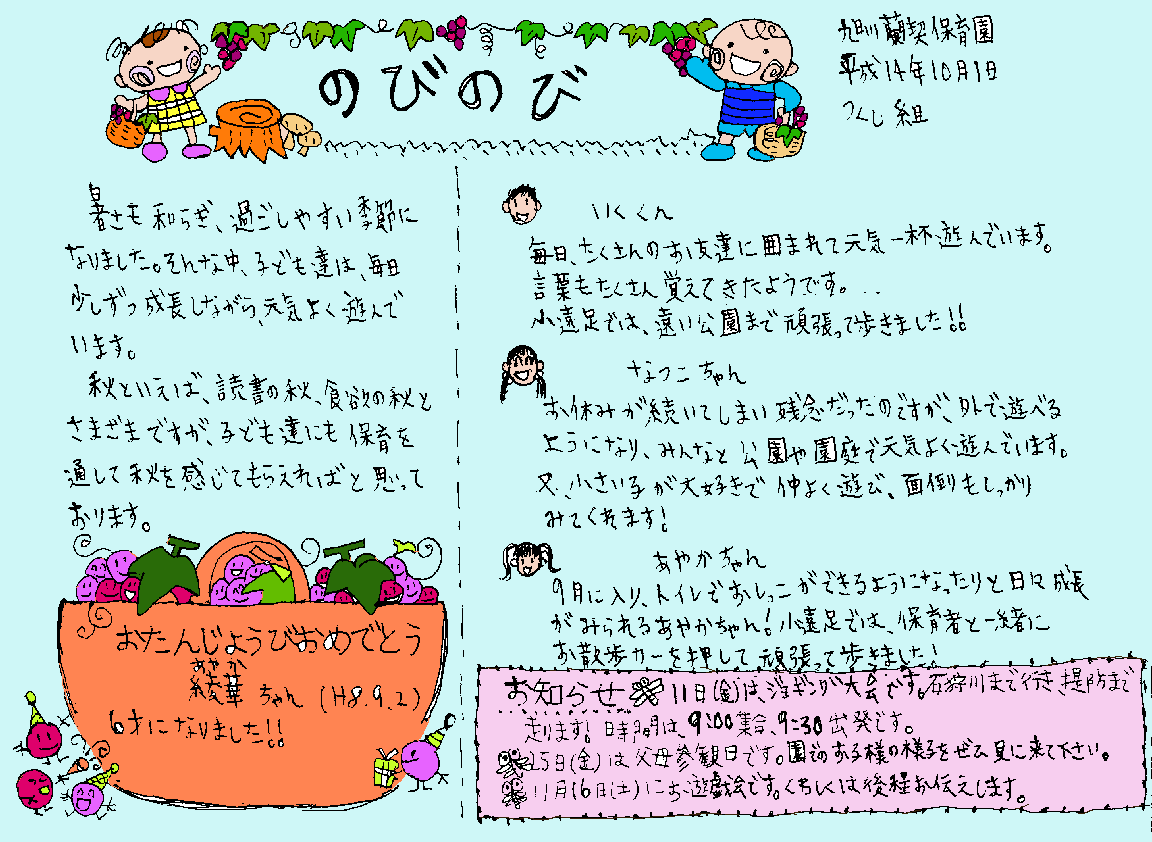 のびのび
旭川蘭契保育園
平成14年10月1日
つくし組
暑さも和らぎ、過ごしやすい季節に
なりました。そんな中、子ども達は、毎日
少しずつ成長しながら、元気よく遊んで
います。
秋といえば、読書の秋、食欲の秋と
さまざまですが、子ども達にも保育を
通して秋を感じてもらえればと思って
おります。
おたんじょうびおめでとう
あやか
綾華ちゃん (H8.9.2)
6才になりました!!
いくくん
毎日、たくさんのお友達に囲まれて元気一杯遊んでいます。
言葉もたくさん覚えてきたようです。..
小遠足では、遠い公園まで頑張って歩きました!!
なつこちゃん
お休みが続いてしまい残念だったのですが、外で遊べる
ようになり、みんなと公園や園庭で元気よく遊んでいます。
又、小さい子が大好きで仲よく遊び、面倒もしっかり
みてくれます!
あやかちゃん
9月に入り、トイレでおしっこができるようになったりと日々成長
がみられるあやかちゃん!小遠足では、保育者と一緒に
お散歩カーを押して頑張って歩きました!
お知らせ 11日(金)は、ジョギング大会です。石狩川まで行き堤防まで
走ります!日時間は、9:00集合、9:30出発です。
25日(金)は父母参観日です。園でのお子様の様子をぜひ見に来て下さい。
11月16日(土)にお遊戯会です。くわしくは後程お伝えします。